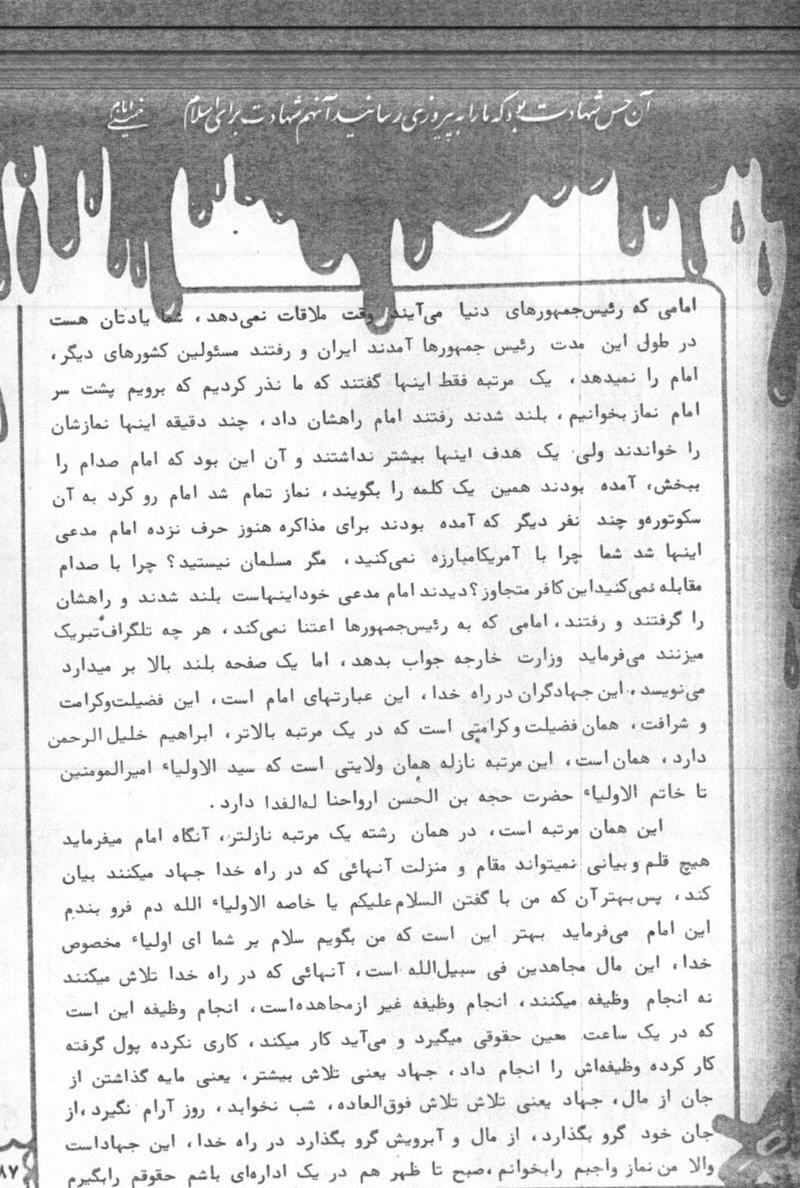 آن حس شهادت بود که ما را به پیروزی رسانید آنهم شهادت برای اسلام
امام خمینی
امامی که رئیس‌جمهورهای دنیا می‌آیند وقت ملاقات نمی‌دهد، شما یادتان هست
در طول این مدت رئیس جمهورها آمدند ایران و رفتند مسئولین کشورهای دیگر،
امام را نمیدهد، یک مرتبه فقط اینها گفتند که ما نذر کردیم که برویم پشت سر
امام نماز بخوانیم، بلند شدند رفتند امام راهشان داد، چند دقیقه اینها نمازشان
را خواندند ولی یک هدف اینها بیشتر نداشتند و آن این بود که امام صدام را
ببخش، آمده بودند همین یک کلمه را بگویند، نماز تمام شد امام رو کرد به آن
سکوتوره‌و چند نفر دیگر که آمده بودند برای مذاکره هنوز حرف نزده امام مدعی
اینها شد شما چرا با آمریکامبارزه نمی‌کنید، مگر مسلمان نیستید؟ چرا با صدام
مقابله نمی‌کنیداین کافر متجاوز؟دیدند امام مدعی خوداینهاست بلند شدند و راهشان
را گرفتند و رفتند، امامی که به رئیس‌جمهورها اعتنا نمی‌کند، هر چه تلگراف تبریک
میزنند می‌فرماید وزارت خارجه جواب بدهد، اما یک صفحه بلند بالا بر میدارد
می‌نویسد، این جهادگران در راه خدا، این عبارتهای امام است، این فضیلت‌وکرامت
و شرافت، همان فضیلت و کرامتی است که در یک مرتبه بالاتر، ابراهیم خلیل الرحمن
دارد، همان است، این مرتبه نازله همان ولایتی است که سید الاولیاء امیرالمومنین
تا خاتم الاولیاء حضرت حجه بن الحسن ارواحنا له‌الفدا دارد.
این همان مرتبه است، در همان رشته یک مرتبه نازلتر، آنگاه امام میفرماید
هیچ قلم و بیانی نمیتواند مقام و منزلت آنهائی که در راه خدا جهاد میکنند بیان
کند، پس بهتر آن که من با گفتن السلام علیکم یا خاصه الاولیاء الله دم فرو بندم
این امام می‌فرماید بهتر این است که من بگویم سلام بر شما ای اولیاء مخصوص
خدا، این مال مجاهدین فی سبیل‌الله است، آنهائی که در راه خدا تلاش میکنند
نه انجام وظیفه میکنند، انجام وظیفه غیر ازمجاهده‌است، انجام وظیفه این است
که در یک ساعت معین حقوقی میگیرد و می‌آید کار میکند، کاری نکرده پول گرفته
کار کرده وظیفه‌اش را انجام داد، جهاد یعنی تلاش بیشتر، یعنی مایه گذاشتن از
جان از مال، جهاد یعنی تلاش تلاش فوق‌العاده، شب نخوابد، روز آرام نگیرد،از
جان خود گرو بگذارد، از مال و آبرویش گرو بگذارد در راه خدا، این جهاداست
والا من نماز واجبم رابخوانم،صبح تا ظهر هم در یک اداره‌ای باشم حقوقم رابگیرم
۸۷